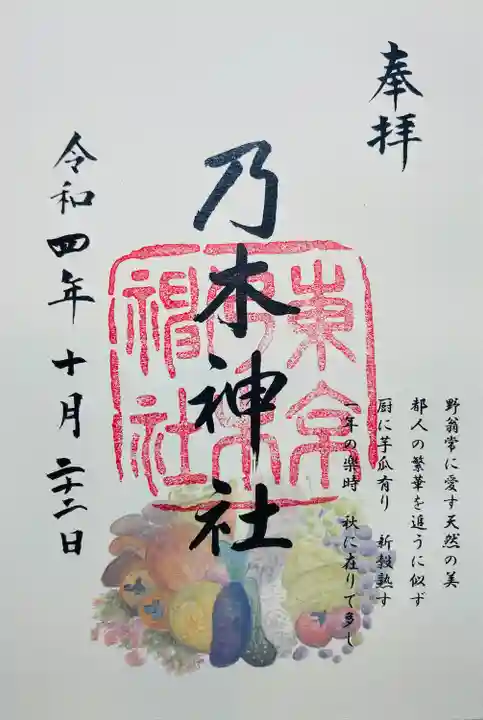 奉拝
乃木神社
東京
乃木
神社
野翁常に愛す天然の美
都人の繁華を追うに似ず
厨に芋瓜有り 新穀熟す
一年の楽時 秋に在りて多し
令和四年十月二十二日